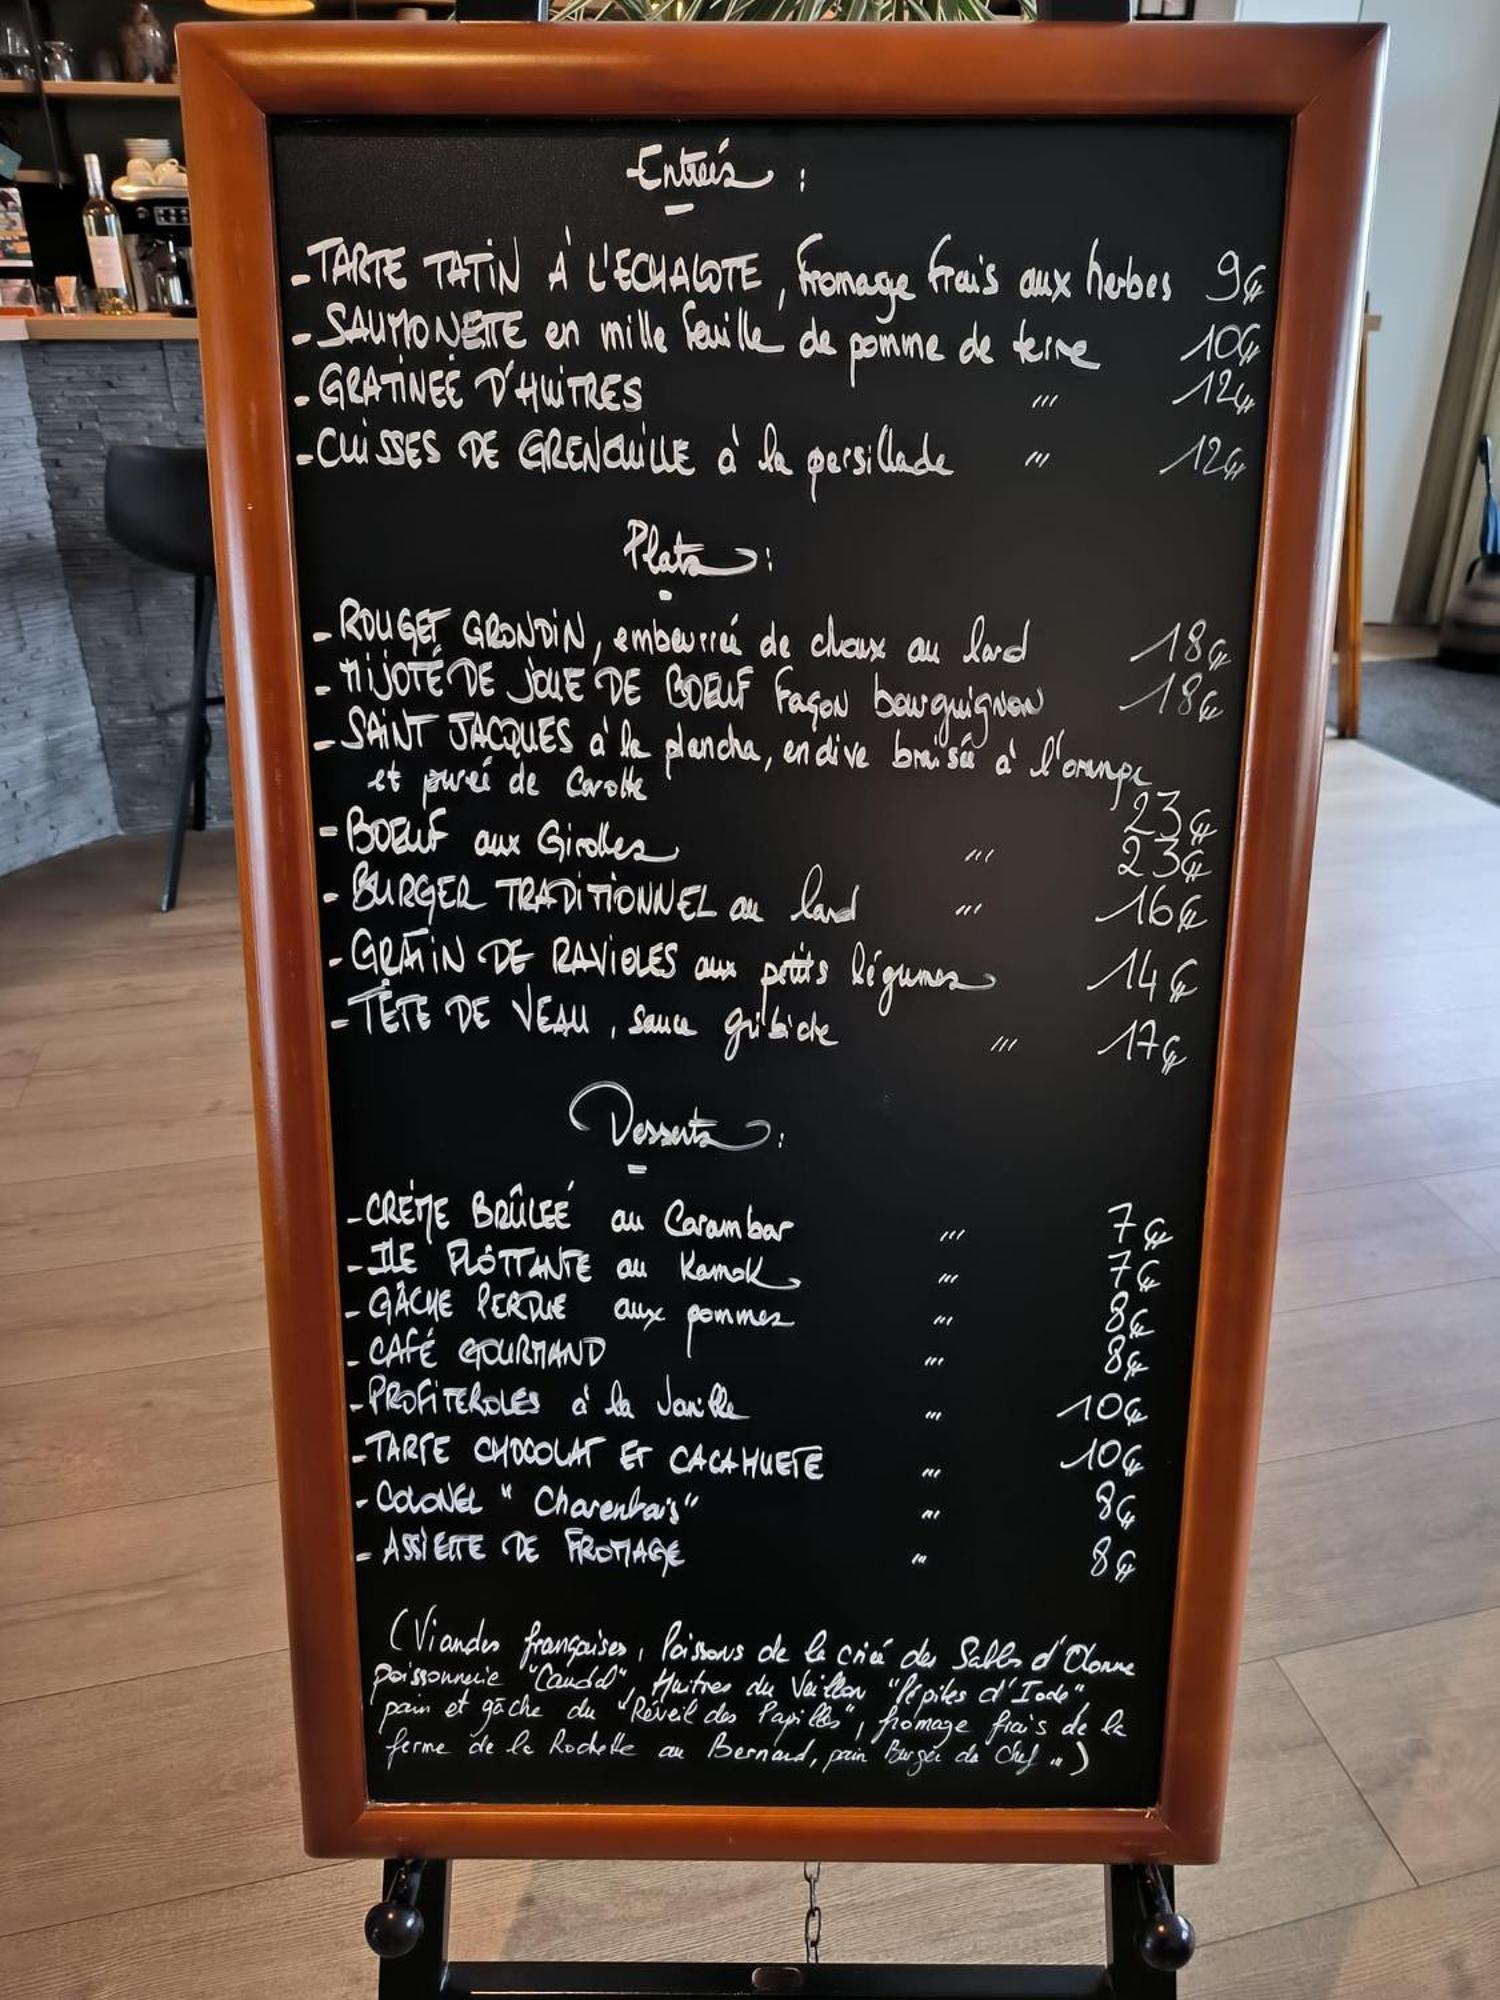 Entrées :
- TARTE TATIN À L'ECHALOTE, fromage frais aux herbes 9€
- SAUMONETTE en mille feuille de pomme de terre 10€
- GRATINÉE D'HUITRES " 12€
- CUISSES DE GRENOUILLE à la persillade " 12€
Plats :
- ROUGET GRONDIN, embeurrée de choux au lard 18€
- MIJOTÉ DE JOUE DE BOEUF façon bourguignon 18€
- SAINT JACQUES à la plancha, endive braisée à l'orange
et purée de Carotte 23€
- BOEUF aux Girolles " 23€
- BURGER TRADITIONNEL au lard " 16€
- GRATIN DE RAVIOLES aux petits légumes 14€
- TÊTE DE VEAU, sauce gribiche " 17€
Desserts :
- CRÈME BRÛLÉE au Carambar " 7€
- ILE FLOTTANTE au Kamok " 7€
- GÂCHE PERDUE aux pommes " 8€
- CAFÉ GOURMAND " 8€
- PROFITEROLES à la Vanille " 10€
- TARTE CHOCOLAT ET CACAHUETE " 10€
- COLONEL "Charentais" " 8€
- ASSIETTE DE FROMAGE " 8€
(Viandes françaises, Poissons de la criée des Sables d'Olonne
poissonnerie , Huitres du Veillon "Pépites d'Iode"
pain et gâche du "Réveil des Papilles", fromage frais de la
ferme de la Rochette au Bernard, pain Burger du Chef ...)